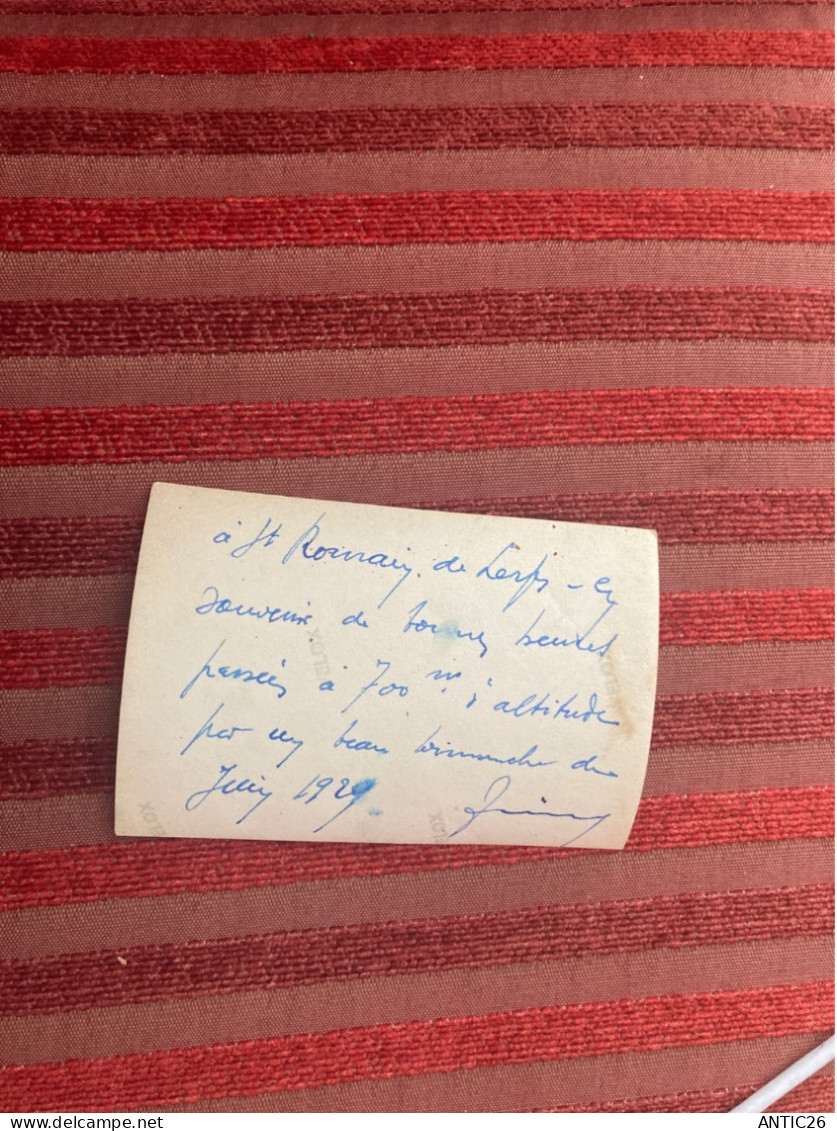 à St Romain de Lerps - en
souvenir de bonnes heures
passées à 700 m d'altitude
par un beau dimanche de
Juin 1929
VELOX
VELOX
VELOX
VELOX
delcampe.net
ANTIC26